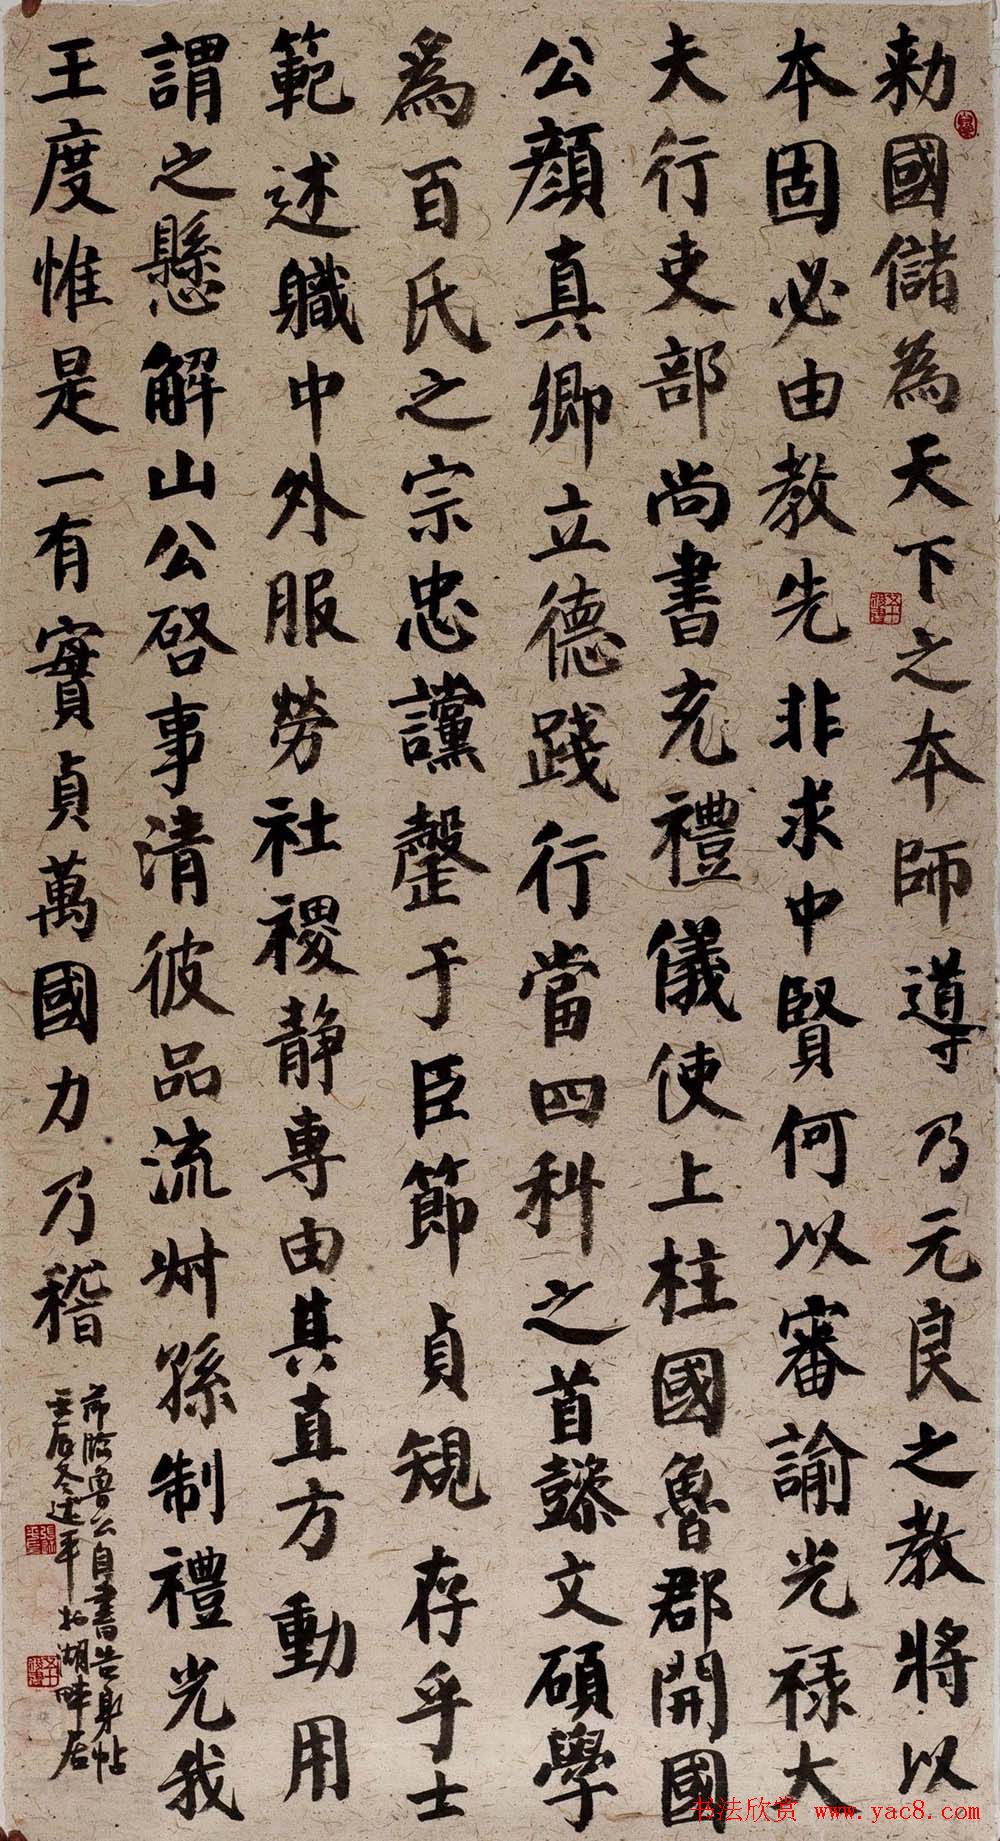 勅國儲為天下之本師導乃元良之教將以
本固必由教先非求中賢何以審諭光祿大
夫行吏部尚書充禮儀使上柱國魯郡開國
公顏真卿立德踐行當四科之首懿文碩學
為百氏之宗忠讜罄于臣節貞規存乎士
範述職中外服勞社稷静專由其直方動用
謂之懸解山公啓事清彼品流叔孫制禮光我
王度惟是一有實貞萬國力乃稽
節臨魯公自書告身帖
壬辰冬逵平於湖畔居
书法欣赏 www.yac8.com